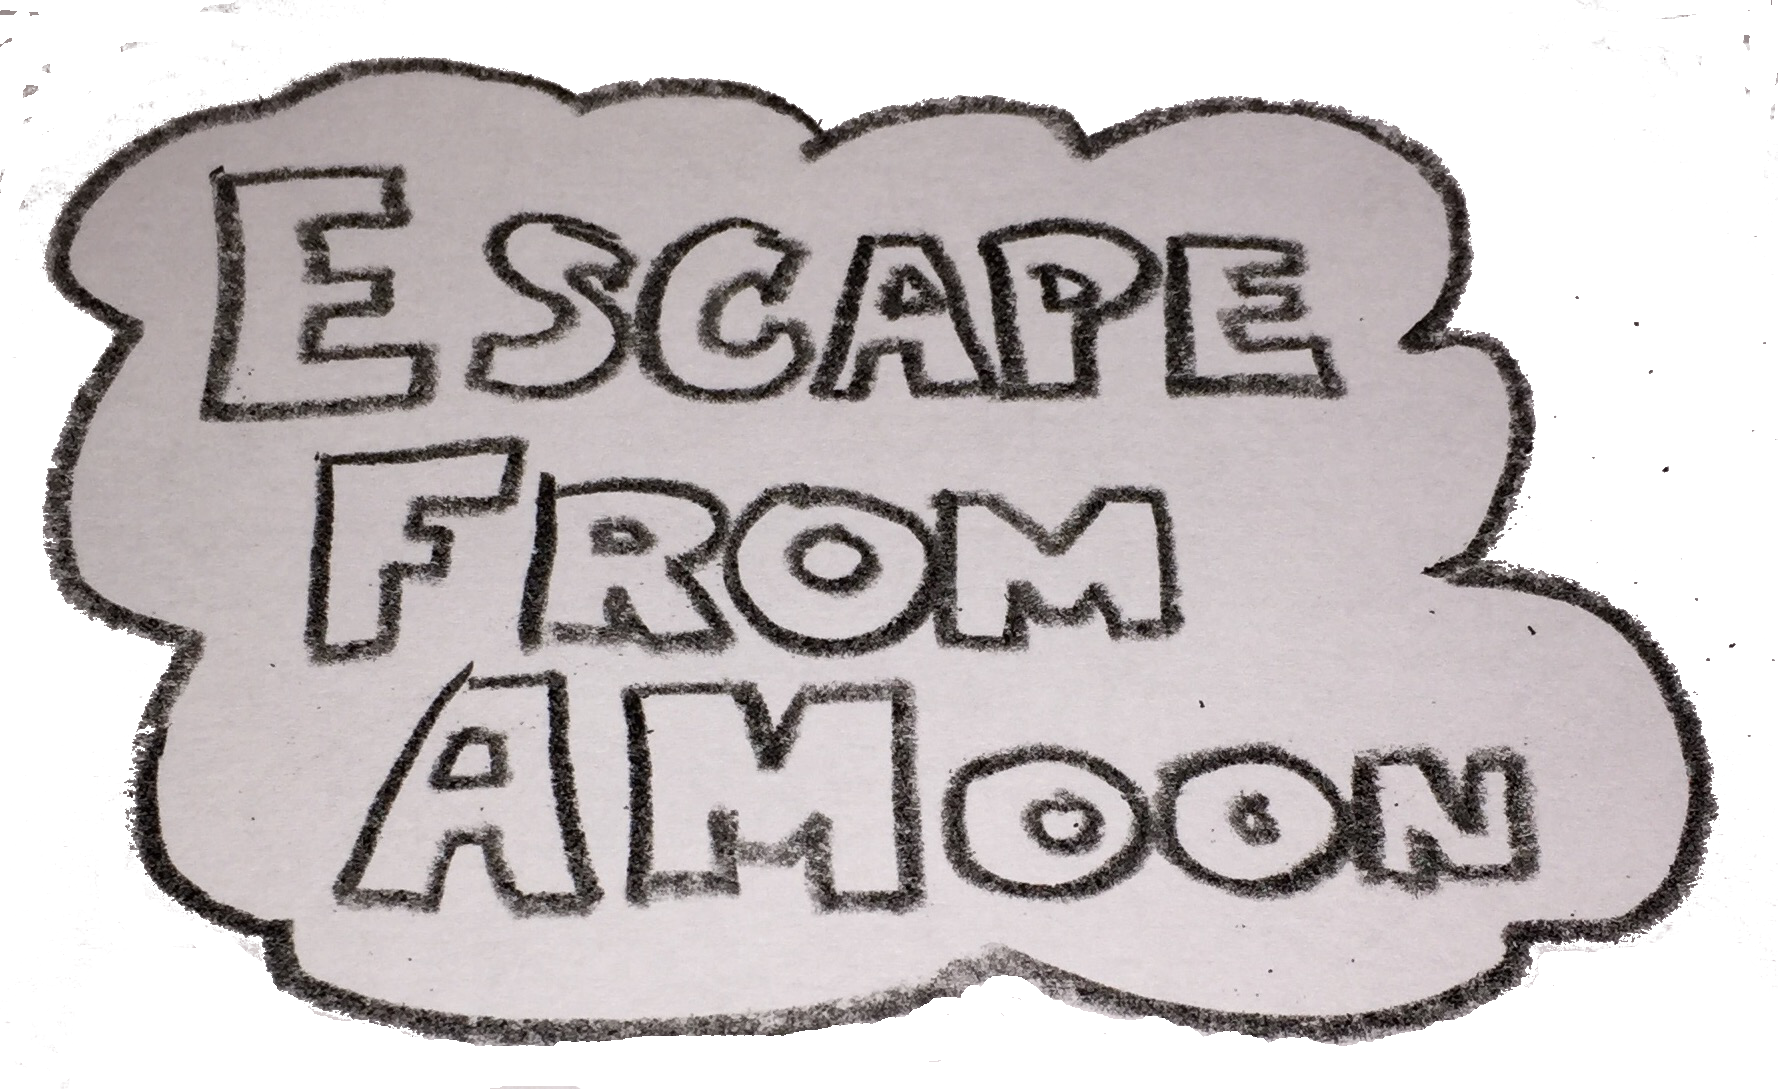 ESCAPE
FROM
A MOON